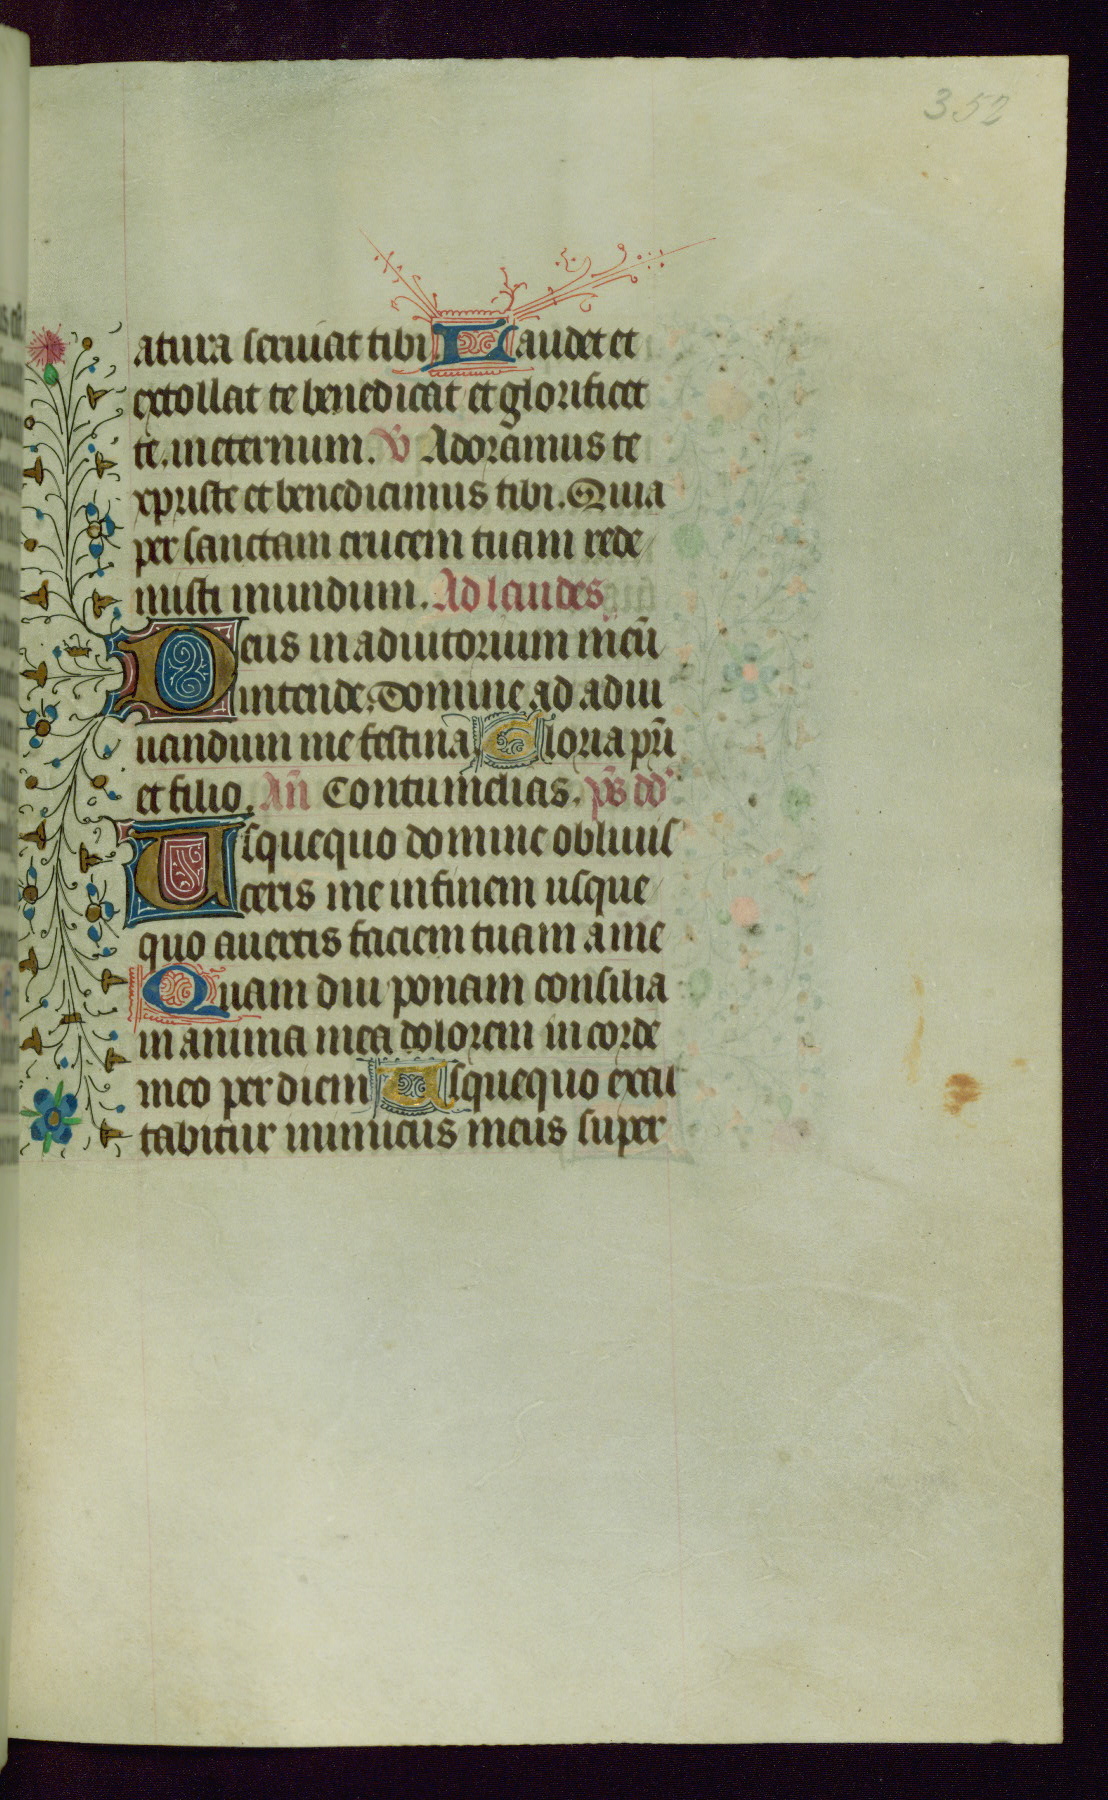 352
atura seruiat tibi Laudet et
extollat te benedicat et glorificet
te. in eternum. V Adoramus te
xpriste et benedicimus tibi. Quia
per sanctam crucem tuam rede
misti mundum. Ad laudes
Deus in adiutorium meū
intende. Domine ad adiu
uandum me festina Gloria pr̄i
et filio. An̄ Contumelias. ps̄
Usquequo domine obliuis
ceris me in finem usque
quo auertis faciem tuam a me
Quam diu ponam consilia
in anima mea dolorem in corde
meo per diem Usquequo exal
tabitur inimicus meus super